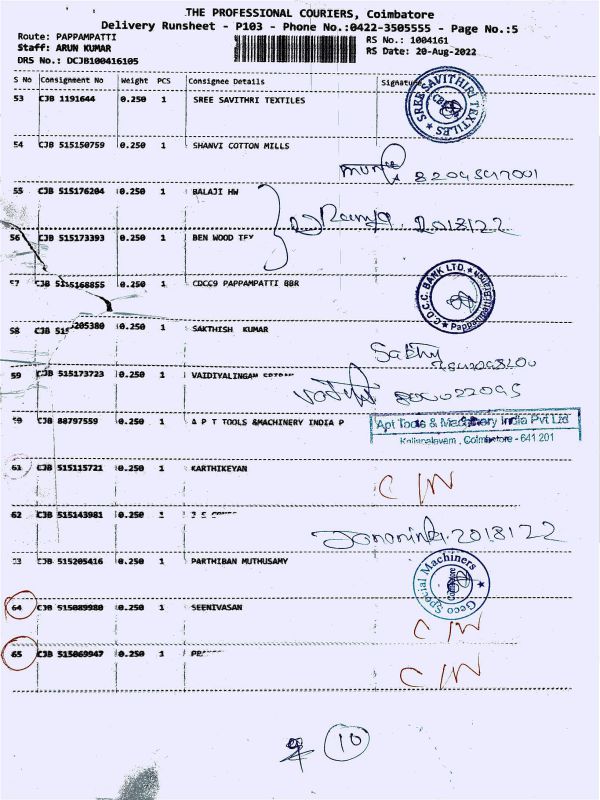 THE PROFESSIONAL COURIERS, Coimbatore
Delivery Runsheet - P103 - Phone No.:0422-3505555 - Page No.:5
Route: PAPPAMPATTI RS No.: 1004161
Staff: ARUN KUMAR RS Date: 20-Aug-2022
DRS No.: DCJB100416105
S No Consignment No Weight PCS Consignee Details Signature
53 CJB 1191644 0.250 1 SREE SAVITHRI TEXTILES
SREE SAVITHRI TEXTILES
54 CJB 515150759 0.250 1 SHANVI COTTON MILLS
55 CJB 515176204 0.250 1 BALAJI HW
Ramya. 20/8/22
56 CJB 515173393 0.250 1 BEN WOOD TEX
57 CJB 515168855 0.250 1 CDCC9 PAPPAMPATTI BBR
C.D.C.C. BANK LTD. Pappampatti
58 CJB 515205380 0.250 1 SAKTHISH KUMAR
Sakthy
59 CJB 515173723 0.250 1 VAIDIYALINGAM
60 CJB 88797559 0.250 1 A P T TOOLS &MACHINERY INDIA P
Apt Tools & Machinery India Pvt Ltd
Coimbatore - 641 201
61 CJB 515115721 0.250 1 KARTHIKEYAN
C/N
62 CJB 515143981 0.250 1
20/8/22
63 CJB 515205416 0.250 1 PARTHIBAN MUTHUSAMY
Geco Special Machiners Coimbatore
64 CJB 515089980 0.250 1 SEENIVASAN
C/N
65 CJB 515069947 0.250 1
C/N
10